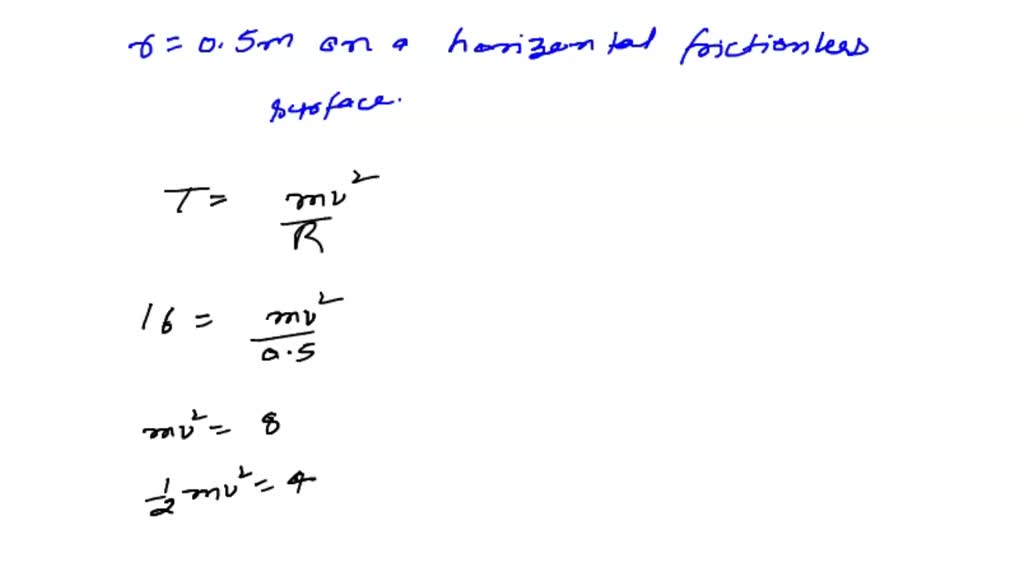 r = 0.5m on a horizontal frictionless
surface.
T = mv²/R
16 = mv²/0.5
mv² = 8
1/2 mv² = 4